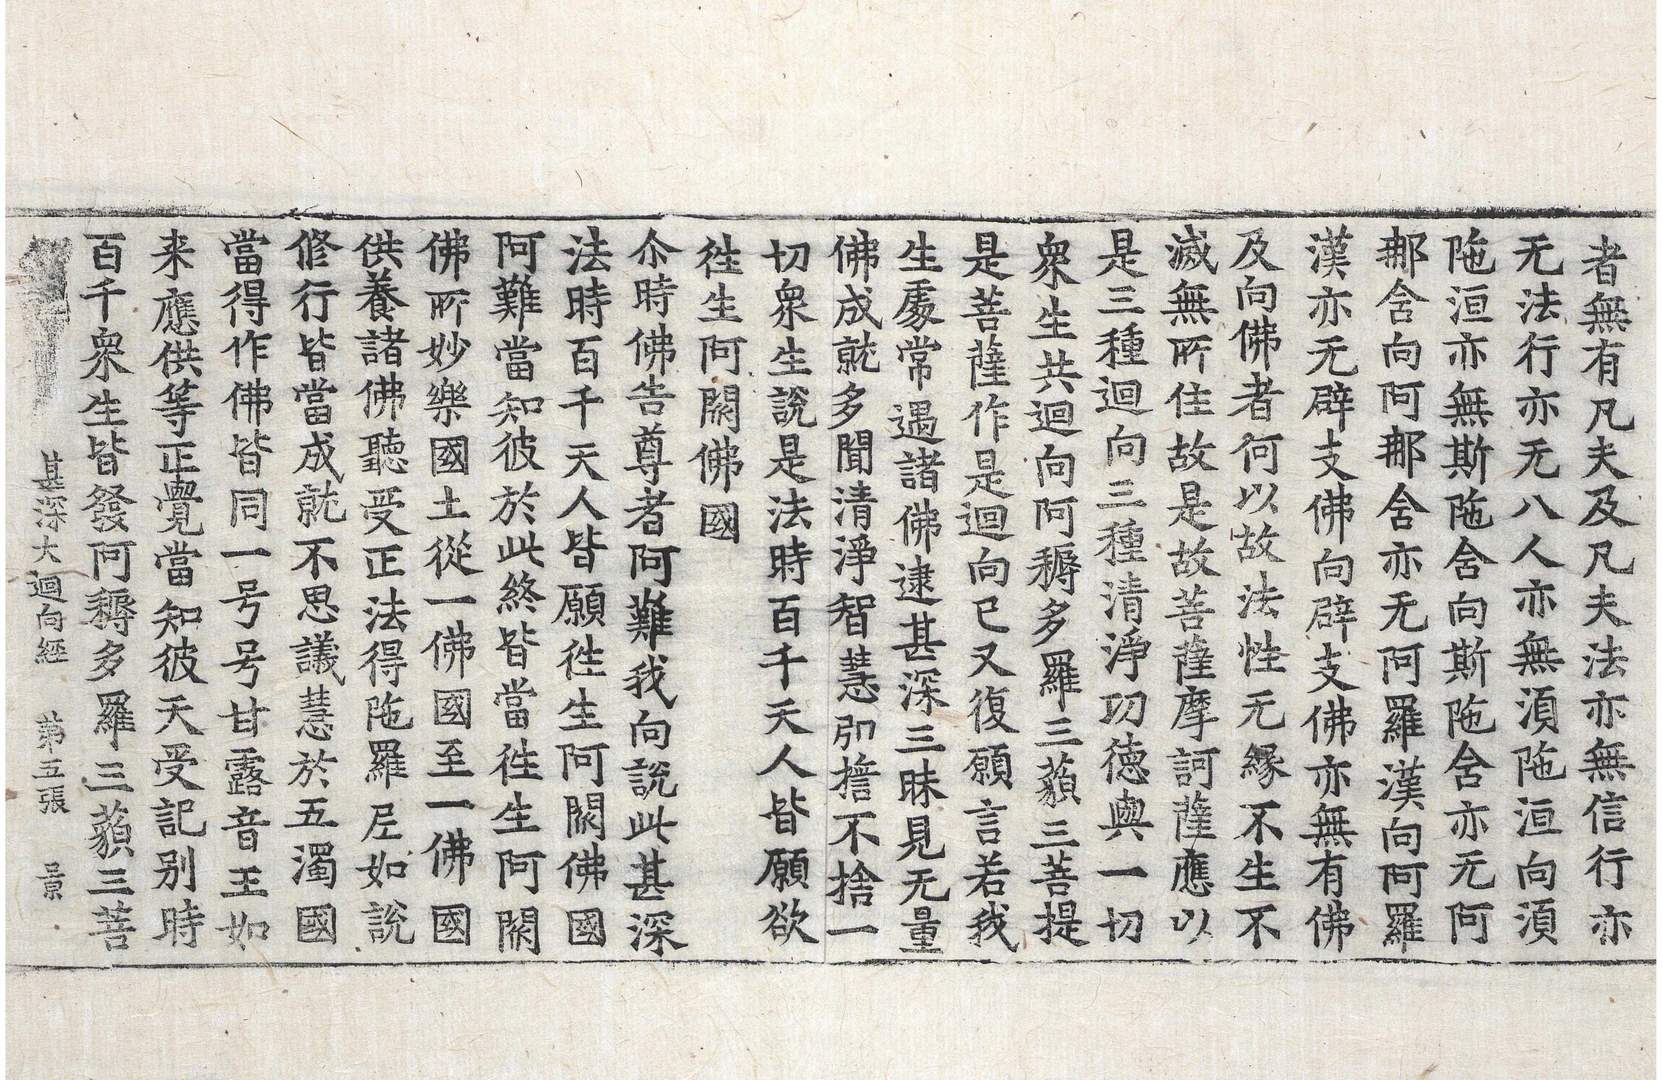 者無有凡夫及凡夫法亦無信行亦
无法行亦无八人亦無湏陁洹向湏
陁洹亦無斯陁舍向斯陁舍亦元阿
那舍向阿那舍亦无阿羅漢向阿羅
漢亦无辟支佛向辟支佛亦無有佛
及向佛者何以故法性无縁不生不
滅無所住故是故菩薩摩訶薩應以
是三種迴向三種清淨功德與一切
衆生共迴向阿耨多羅三藐三菩提
是菩薩作是迴向已又復願言若我
生處常遇諸佛逮甚深三昧見无量
佛成就多聞清淨智慧即擔不捨一
切衆生說是法時百千天人皆願欲
徃生阿閦佛國
尒時佛告尊者阿難我向說此甚深
法時百千天人皆願徃生阿閦佛國
阿難當知彼於此終皆當徃生阿閦
佛所妙樂國土從一佛國至一佛國
供養諸佛聽受正法得陁羅尼如說
修行皆當成就不思議慧於五濁國
當得作佛皆同一号号甘露音王如
来應供等正覺當知彼天受記別時
百千衆生皆發阿耨多羅三藐三菩
甚深大迴向經 苐五張 景